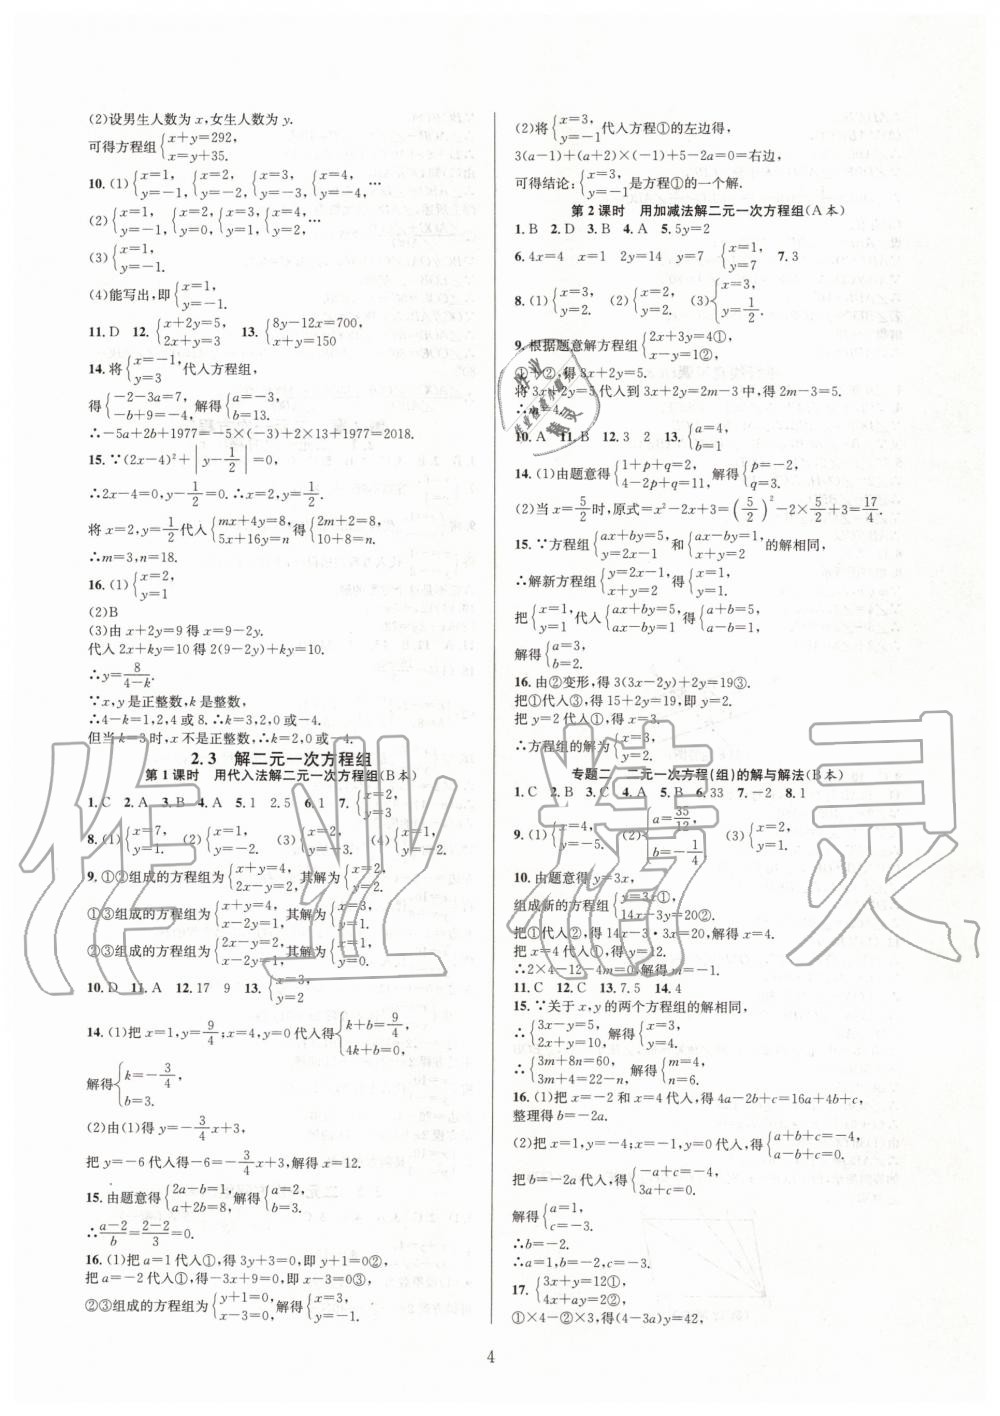 (2)设男生人数为 x,女生人数为 y.
可得方程组{x+y=292, x=y+35.
10. (1){x=1, y=-1, {x=2, y=-2, {x=3, y=-3, {x=4, y=-4, …
(2){x=1, y=-1, {x=2, y=0, {x=3, y=1, {x=4, y=2, …
(3){x=1, y=-1.
(4)能写出,即{x=1, y=-1.
11. D 12. {x+2y=5, 2x+y=3 13. {8y-12x=700, x+y=150
14. 将{x=1, y=3 代入方程组,
得{-2-3a=7, -b+9=-4, 解得{a=-3, b=13.
∴-5a+2b+1977=-5×(-3)+2×13+1977=2018.
15. ∵(2x-4)²+|y-1/2|=0,
∴2x-4=0,y-1/2=0. ∴x=2,y=1/2.
将 x=2,y=1/2代入{mx+4y=8, 5x+16y=n 得{2m+2=8, 10+8=n.
∴m=3,n=18.
16. (1){x=2, y=1
(2)B
(3)由 x+2y=9 得 x=9-2y.
代入 2x+ky=10 得 2(9-2y)+ky=10.
∴y=8/(4-k).
∵x,y 是正整数,k 是整数,
∴4-k=1,2,4 或 8. ∴k=3,2,0 或-4.
但当 k=3 时,x 不是正整数,∴k=2,0 或-4.
2.3 解二元一次方程组
第 1 课时 用代入法解二元一次方程组(B 本)
1. C 2. A 3. B 4. A 5. 1 2.5 6. 1 7. {x=2, y=3
8. (1){x=7, y=1. (2){x=2, y=-1. (3){x=3, y=2. (4){x=1, y=-2.
9. ①②组成的方程组为{x+y=4, 2x-y=2, 其解为{x=2, y=2.
①③组成的方程组为{x+y=4, x-2y=1, 其解为{x=3, y=1.
②③组成的方程组为{2x-y=2, x-2y=1, 其解为{x=1, y=0.
10. D 11. A 12. 17 9 13. {x=1, y=2
14. (1)把 x=1,y=9/4;x=4,y=0 代入得{k+b=9/4, 4k+b=0,
解得{k=-3/4, b=3.
(2)由(1)得 y=-3/4x+3,
把 y=-6 代入得-6=-3/4x+3,解得 x=12.
15. 由题意得{2a-b=1, a+2b=8, 解得{a=2, b=3.
∴(a-2)/b=(2-2)/3=0.
16. (1)把 a=1 代入①,得 3y+3=0,即 y+1=0②,
把 a=-2 代入①,得-3x+9=0,即 x-3=0③,
②③组成的方程组为{y+1=0, x-3=0, 解得{x=3, y=-1.
(2)将{x=3, y=-1 代入方程①的左边得,
3(a-1)+(a+2)×(-1)+5-2a=0=右边,
可得结论:{x=3, y=-1 是方程①的一个解.
第 2 课时 用加减法解二元一次方程组(A 本)
1. B 2. D 3. B 4. A 5. 5y=2
6. 4x=4 x=1 2y=14 y=7 {x=1, y=7 7. 3
8. (1){x=3, y=2. (2){x=2, y=2. (3){x=3, y=1/2.
9. 根据题意解方程组{2x+3y=4①, x-y=1②,
①+②,得 3x+2y=5.
将 3x+2y=5 代入到 3x+2y=2m-3 中,得 2m-3=5.
∴m=4.
10. A 11. B 12. 3 2 13. {a=4, b=1
14. (1)由题意得{1+p+q=2, 4-2p+q=11, 解得{p=-2, q=3.
(2)当 x=5/2时,原式=x²-2x+3=(5/2)²-2×5/2+3=17/4.
15. ∵方程组{ax+by=5, y=2x-1 和{ax-by=1, x+y=2 的解相同,
∴解新方程组{y=2x-1, x+y=2 得{x=1, y=1.
把{x=1, y=1 代入{ax+by=5, ax-by=1 得{a+b=5, a-b=1,
解得{a=3, b=2.
16. 由②变形,得 3(3x-2y)+2y=19③.
把①代入③,得 15+2y=19,即 y=2.
把 y=2 代入①,得 x=3.
∴方程组的解为{x=3, y=2.
专题二 二元一次方程(组)的解与解法(B 本)
1. C 2. B 3. C 4. A 5. B 6. 33 7. -2 8. 1
9. (1){x=4, y=-5. (2){a=35/12, b=-1/4 (3){x=2, y=1.
10. 由题意得 y=3x,
组成新的方程组{y=3x①, 14x-3y=20②.
把①代入②,得 14x-3·3x=20,解得 x=4.
把 x=4 代入①,得 y=12.
∴2×4-12-4m=0,解得 m=-1.
11. C 12. C 13. 7.5 14. 4
15. ∵关于 x,y 的两个方程组的解相同,
∴{3x-y=5, 2x+y=10, 解得{x=3, y=4.
∴{3m+8n=60, 3m+4=22-n, 解得{m=4, n=6.
16. (1)把 x=-2 和 x=4 代入,得 4a-2b+c=16a+4b+c,
整理得 b=-2a.
(2)把 x=1,y=-4;x=-1,y=0 代入,得{a+b+c=-4, a-b+c=0,
把 b=-2a 代入,得{-a+c=-4, 3a+c=0.
解得{a=1, c=-3.
∴b=-2.
∴a=1,b=-2,c=-3.
17. {3x+y=12①, 4x+ay=2②,
①×4-②×3,得(4-3a)y=42,
4
作业精灵
作业
精灵